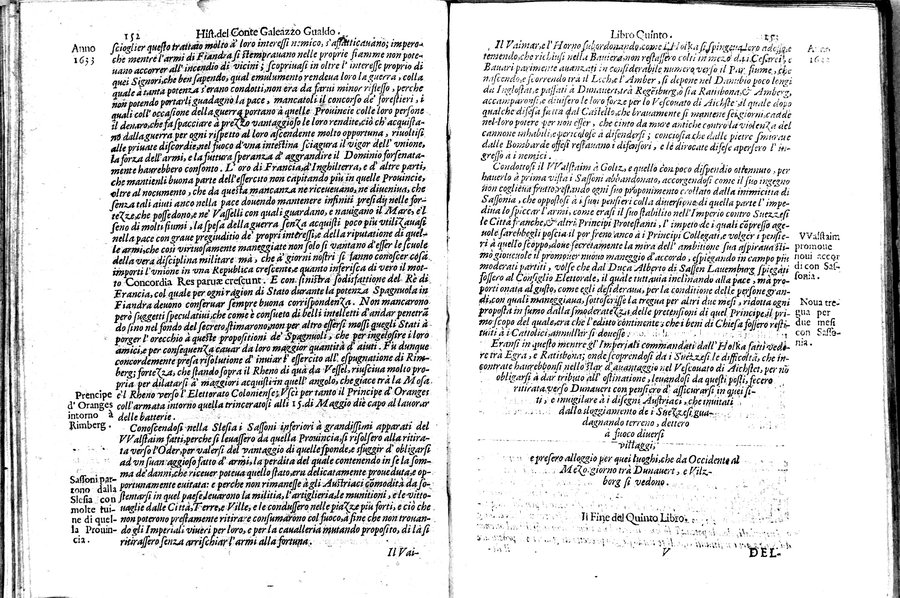 152 Hist. del Conte Galeazzo Gualdo.
Anno
1633
scioglier questo trattato molto à loro interessi nemico, s'affatticauano; impero-
che mentre l'armi di Fiandra si stemprauano nelle proprie fiamme non pote-
uano accorrer all'incendio di vicini; scoprinasi in oltre l'interesse proprio di
quei Signori, che ben sapendo, qual emulumento rendeua loro la guerra, colla
quale à tanta potenza s'erano condotti, non era da farui minor riflesso, perche
non potendo portarli guadagno la pace, mancatoli il concorso de' forestieri, i
quali coll'occasione della guerra portano à quelle Prouincie colle loro persone
il denaro, che fà spacciare à prezzo vantaggioso le loro rendite, ciò ch'acquista-
nò dalla guerra per ogni rispetto al loro ascendente molto opportuna, riuoltisi
alle priuate discordie, nel fuoco d'vna intestina sciagura il vigor dell'vnione,
la forza dell'armi, e la futura speranza d'aggrandire il Dominio forsenata-
mente haurebbero consonto. L'oro di Francia, d'Inghilterra, e d'altre parti,
che mantienli buona parte dell'essercito non capitando più in quelle Prouincie,
oltre al nocumento, che da questa mancanza ne riceueuano, ne diueniua, che
senza tali aiuti anco nella pace douendo mantenere infiniti presidij nelle for-
tezze, che possedono, e ne' Vasselli con quali guardano, e nauigano il Mare, e'l
seno di molti fiumi, la spesa della guerra senza acquisti poco più vtilizauasi
nella pace con graue pregiuditio de' proprij interessi, e della riputatione di quel-
le armi, che così virtuosamente maneggiate non solo si vantano d'esser le scuole
della vera disciplina militare mà, che à' giorni nostri si fanno conoscer così
importi l'vnione in vna Republica crescente, e quanto inferisca di vero il mot-
to Concordia Res paruæ crescunt. E con sinistra sodisfattione del Rè di
Francia, col quale per ogni ragion di Stato durante la potenza Spagnuola in
Fiandra deuono conseruar sempre buona corrispondenza. Non mancarono
però suggetti speculatiui, che come è consueto di belli intelletti d'andar penetrā
do sino nel fondo del secreto, stimarono, non per altro essersi mossi quegli Stati à
porger l'orecchio à queste propositioni de' Spagnuoli, che per ingelosire i loro
amici, e per consequenza cauar da loro maggior quantità d'aiuti. Fù dunque
concordemente presa risolutione d'inuiar l'essercito all'espugnatione di Rim-
berg; fortezza, che stando sopra il Rheno di quà da Vessel, riusciua molto pro-
pria per dilatarsi à' maggiori acquisti in quell'angolo, che giace trà la Mosa
e'l Rheno verso l'Elettorato Coloniense; Vscì per tanto il Principe d'Oranges
coll'armata intorno quella trinceratosi alli 15. di Maggio diè capo al lauorar
delle batterie.
Prencipe
d'Oranges
intorno à
Rimberg.
Conoscendosi nella Slesia i Sassoni inferiori à grandissimi apparati del
VValstaim fatti, perche si leuassero da quella Prouincia, si risolsero alla ritira-
ta verso l'Oder, per valersi del vantaggio di quelle sponde, e sfuggir d'obligarsi
ad vn suantaggioso fatto d'armi, la perdita del quale contenendo in se la som-
ma de' danni, che riceuer poteua quello stato, era delicatamente proueduta, e op-
portunamente euitata: e perche non rimanesse à gli Austriaci cōmodità da so-
stentarsi in quel paese, leuarono la militia, l'artiglieria, le munitioni, e le vitto-
uaglie dalle Città, Terre, e Ville, e le condussero nelle piazze più forti, e ciò che
non poterono prestamente ritirare consumarono col fuoco, à fine che non trouan-
do gli Imperiali viueri per loro, e per la caualleria mutando proposito, di là si
ritirassero senza arrischiar l'armi alla fortuna.
Sassoni par-
tono dalla
Slesia con
molte tui-
ne di quel-
la Prouin-
cia.
Il Vai-
Libro Quinto.
Il Vaimar, e l'Horno subordonando, come l'Holka si spingeua loro adosso, e
temendo, che richiusi nella Bauiera, non restassero colti in mezo da i Cesarei, e
Bauari parimente auanzati in considerabile numero verso il Par fiume, che
nascendo, e scorrendo trà il Lech, e l'Amber, si depone nel Danubio poco lungi
da Inglostat, e passati à Dunauert, trà Regēsburg, ò sia Ratisbona, & Amberg,
accamparonsi, e diuisero le loro forze per lo Vescouato di Aichstet, al quale dopo
qualche difesa fatta dal Castello, che brauamente si mantene sei giorni, cadde
nel loro potere per non esser, che cinto da mura antiche contro la violenza del
cannone inhabili, e pericolose à difendersi; conciosia che dalle pietre smurate
dalle Bombarde offesi restauano i difensori, e le dirocate difese apersero l'in-
gresso a i nemici.
Condottosi il VValstaim à Goltz, e quello con poco dispendio ottenuto, per
hauerlo à prima vista i Sassoni abbandonato, accorgendosi come il suo ingegno
non coglieua frutto restando ogni suo proponimento collato dalla inimicitia di
Sassonia, che oppostosi à i suoi pensieri colla diuersione di quella parte l'impe-
diua lo spiccar l'armi, come erasi il suo stabilito nell'Imperio contro Suezzesi
le Città franche, & altri Principi Protestanti, l'impeto de i quali cōpresso age-
uole sarebbegli poscia il por freno anco à i Principi Collegati, e volger i pensie-
ri à quello scopo, doue secretamente la mira dell'ambitione sua aspiraua sti-
mò gioueuole il promouer nuouo maneggio d'accordo, e spiegando in campo più
moderati partiti, volse che dal Duca Alberto di Sassen Lauemburg spiegati
fossero al Consiglio Elettorale, il quale tuttauia inclinando alla pace, mà pro-
portionata al gusto, come egli desideraua, per la conditione delle persone gran-
di, con quali maneggiaua, sottoscrisse la tregua per altri due mesi, ridotta ogni
proposta in sumo dalla smoderatezza, delle pretensioni di quel Principe, il pri-
mo scopo del quale, era che l'editto continente, che i beni di Chiesa fossero resti-
tuiti à i Cattolici, annullar si douesse.
VValstaim
promoue
noui accor
di con Sas-
sonia.
Noua tre-
gua per
due mesi
con Sasso-
nia.
Eransi in questo mentre gl'Imperiali commandati dall'Holka fatti vede-
re trà Egra, e Ratisbona; onde scoprendosi da i Suezzesi le difficoltà, che in-
contrate haurebbonsi nello star d'auantaggio nel Vescouato di Aichstet, per nō
obligarsi à dar tributo all'ostinatione, leuandosi da questi posti, fecero
ritirata verso Dunauert con pensiero d'assicurarsi in quei si-
ti, e inuigilare à i disegni Austriaci, che inuitati
dallo sloggiamento de i Suezzesi gua-
dagnando terreno, dettero
à fuoco diuersi
villaggi,
e presero alloggio per quei luoghi, che da Occidente al
Mezo giorno trà Dunauert, e Vilz-
borg si vedono.
Il Fine del Quinto Libro.
V DEL-